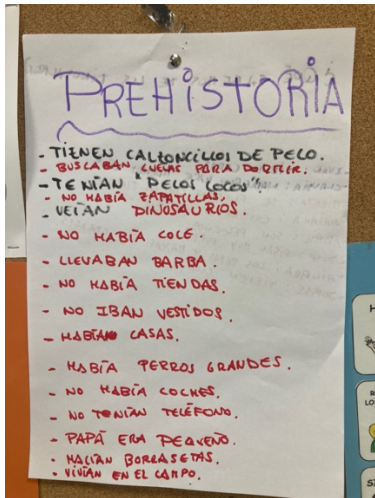 PREHISTORIA
- TIENEN CALZONCILLOS DE PELO.
- BUSCABAN CUEVAS PARA DORMIR.
- TENÍAN "PELOS LOCOS".
- NO HABÍA ZAPATILLAS.
- VEÍAN DINOSAURIOS.
- NO HABÍA COLE.
- LLEVABAN BARBA.
- NO HABÍA TIENDAS.
- NO IBAN VESTIDOS.
- HABÍAN CASAS.
- HABÍA PERROS GRANDES.
- NO HABÍA COCHES.
- NO TENÍAN TELÉFONO.
- PAPÁ ERA PEQUEÑO.
- HACÍAN BORRASETAS.
- VIVÍAN EN EL CAMPO.